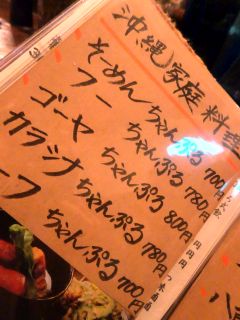 沖縄家庭料理
そーめんちゃんぷる 700円
フーちゃんぷる 780円
ゴーヤちゃんぷる 800円
カラシナちゃんぷる 780円
ーフちゃんぷる 700円